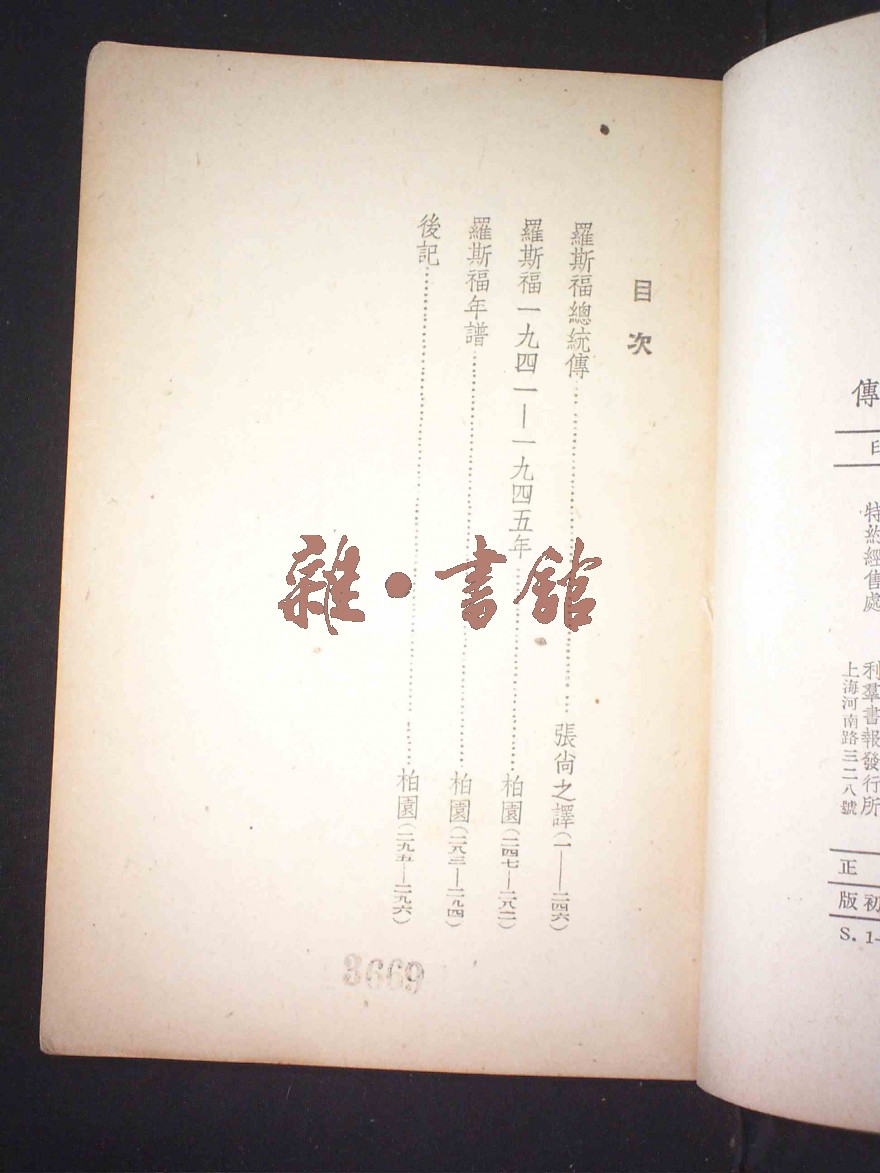 目次
羅斯福總統傳……張尚之譯(一——二四六)
羅斯福一九四一—一九四五年……柏園(二四七—二八二)
羅斯福年譜……柏園(二八三—二九四)
後記……柏園(二九五—二九六)
3669
雜·書館
傳
特約經售處
利羣書報發行所
上海河南路三二八號
正
版初
S. 1-